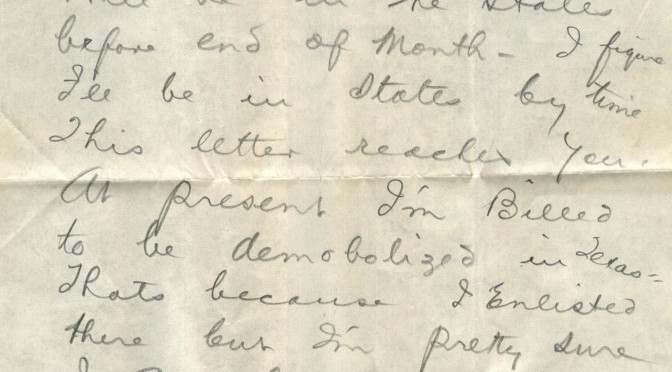 be in the States
before end of Month - I figure
I'll be in States by time
This letter reaches you.
At present I'm Billed
to be demobolized in Texas -
Thats because I Enlisted
there but I'm pretty sure